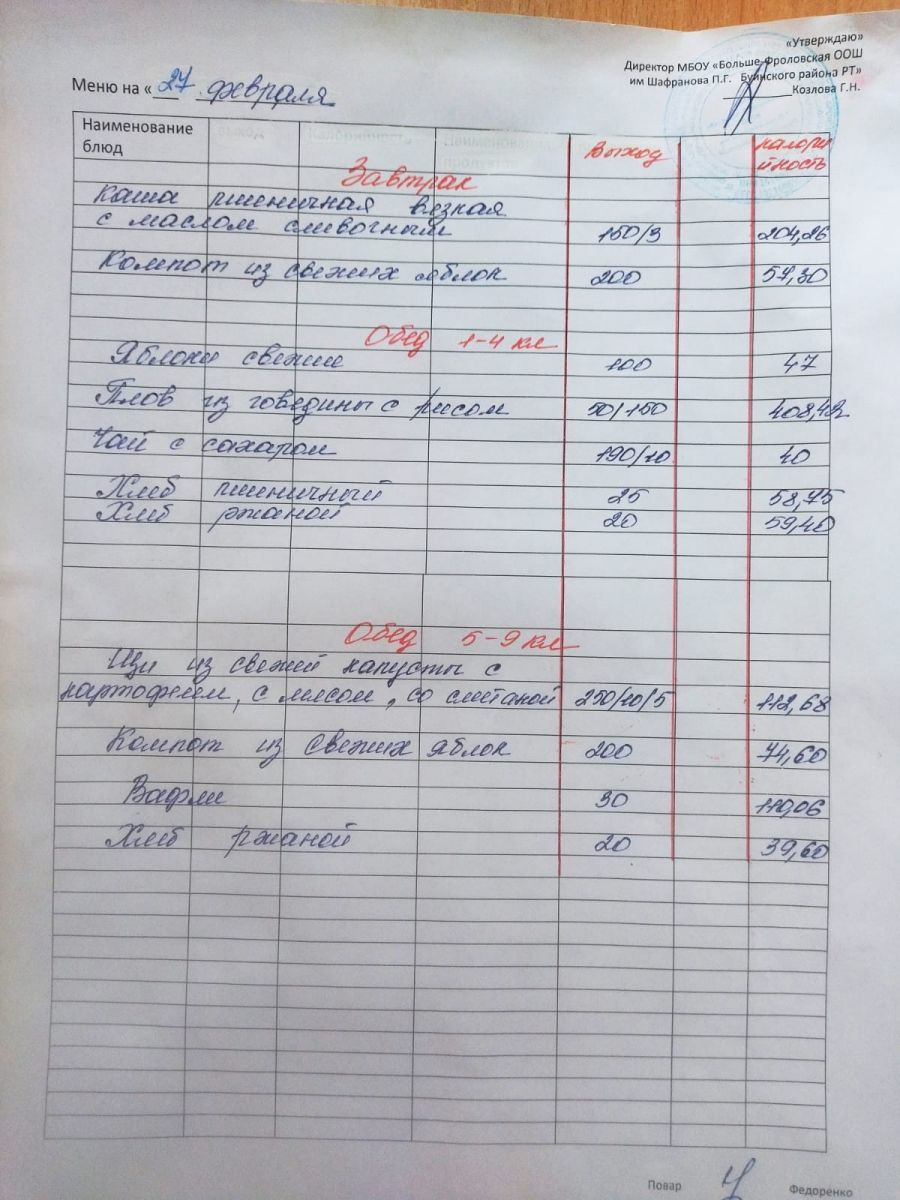 «Утверждаю»
Директор МБОУ «Больше-Фроловская ООШ
им Шафранова П.Г. Буинского района РТ»
Козлова Г.Н.
Меню на « 27 февраля
Наименование блюд выход калорийность
Завтрак
Каша пшеничная вязкая
с маслом сливочным 150/3 204,26
Компот из свежих яблок 200 57,30
Обед 1-4 кл
Яблоки свежие 100 47
Плов из говядины с рисом 50/150 408,42
Чай с сахаром 190/10 40
Хлеб пшеничный 25 58,75
Хлеб ржаной 20 59,40
Обед 5-9 кл
Щи из свежей капусты с
картофелем, с мясом, со сметаной 250/10/5 112,68
Компот из свежих яблок 200 74,60
Вафли 30 110,06
Хлеб ржаной 20 39,60
Повар Федоренко